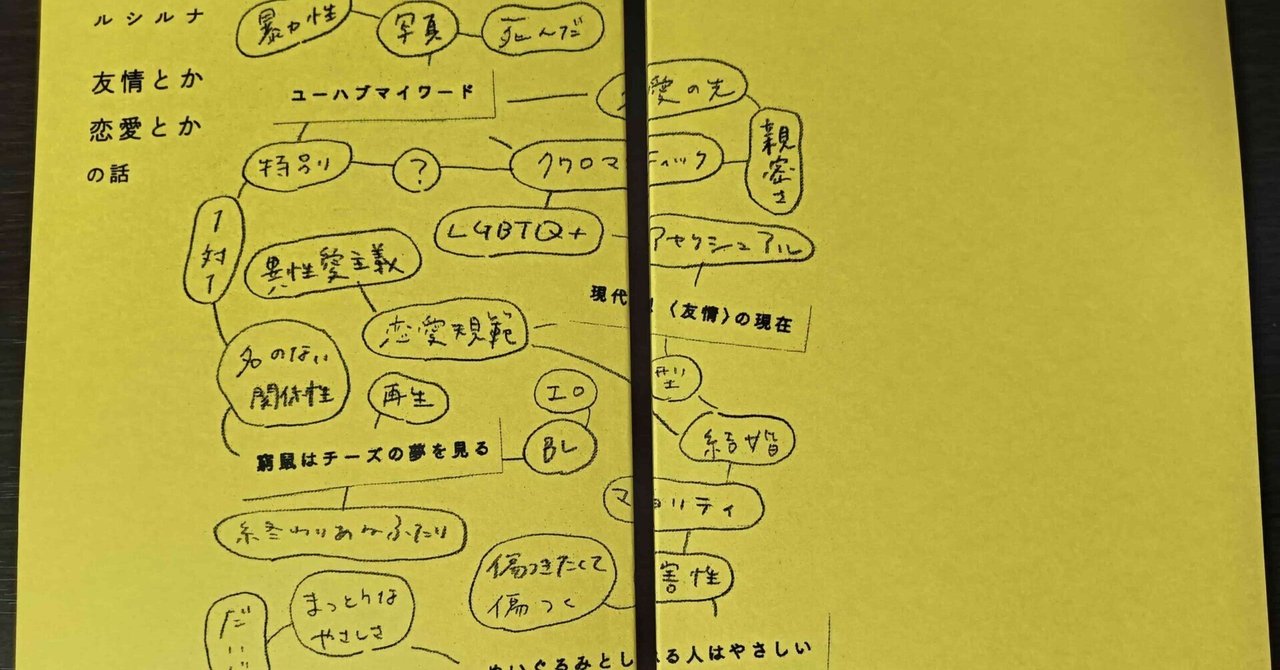 ルシルナ
友情とか
恋愛とか
の話
暴力性
写真
死んだ
ユーハブマイワード
愛の先
親密さ
特別
?
クワロマ
ティック
LGBTQ+
アセクシュアル
1対1
異性愛主義
恋愛規範
現代
〈友情〉の現在
名のない
関係性
再生
エロ
BL
型
結婚
窮鼠はチーズの夢を見る
マ
ョリティ
終わりあるふたり
害性
傷つきたくて
傷つく
まっとうな
やさしさ
だい
ぬいぐるみとし
る人はやさしい